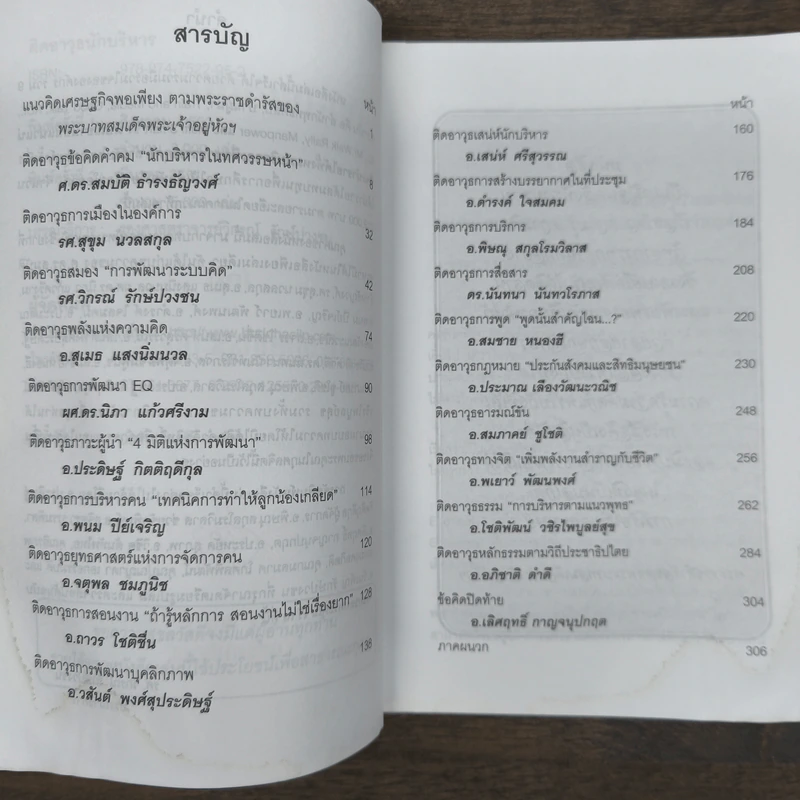 สารบัญ
หน้า
แนวคิดเศรษฐกิจพอเพียง ตามพระราชดำรัสของ
พระบาทสมเด็จพระเจ้าอยู่หัวฯ 1
ติดอาวุธข้อคิดคำคม “นักบริหารในทศวรรษหน้า” 8
ศ.ดร.สมบัติ ธำรงธัญวงศ์
ติดอาวุธการเมืองในองค์การ 32
รศ.สุขุม นวลสกุล
ติดอาวุธสมอง “การพัฒนาระบบคิด” 42
รศ.วิกรณ์ รักษ์ปวงชน
ติดอาวุธพลังแห่งความคิด 74
อ.สุเมธ แสงนิ่มนวล
ติดอาวุธการพัฒนา EQ 90
ผศ.ดร.นิภา แก้วศรีงาม
ติดอาวุธภาวะผู้นำ “4 มิติแห่งการพัฒนา” 98
อ.ประดิษฐ์ กิตติฤดีกุล
ติดอาวุธการบริหารคน “เทคนิคการทำให้ลูกน้องเกลียด” 114
อ.พนม ปีย์เจริญ
ติดอาวุธยุทธศาสตร์แห่งการจัดการคน 120
อ.จตุพล ชมภูนิช
ติดอาวุธการสอนงาน “ถ้ารู้หลักการ สอนงานไม่ใช่เรื่องยาก” 128
อ.ถาวร โชติชื่น
ติดอาวุธการพัฒนาบุคลิกภาพ 138
อ.วสันต์ พงศ์สุประดิษฐ์
หน้า
ติดอาวุธเสน่ห์นักบริหาร 160
อ.เสน่ห์ ศรีสุวรรณ
ติดอาวุธการสร้างบรรยากาศในที่ประชุม 176
อ.ดำรงค์ ใจสมคม
ติดอาวุธการบริการ 184
อ.พิษณุ สกุลโรมวิลาส
ติดอาวุธการสื่อสาร 208
ดร.นันทนา นันทวโรภาส
ติดอาวุธการพูด “พูดนั้นสำคัญไฉน...?” 220
อ.สมชาย หนองฮี
ติดอาวุธกฎหมาย “ประกันสังคมและสิทธิมนุษยชน” 230
อ.ประมาณ เลืองวัฒนะวณิช
ติดอาวุธอารมณ์ขัน 248
อ.สมภาคย์ ชูโชติ
ติดอาวุธทางจิต “เพิ่มพลังงานสำราญกับชีวิต” 256
อ.พเยาว์ พัฒนพงศ์
ติดอาวุธธรรม “การบริหารตามแนวพุทธ” 262
อ.โชติพัฒน์ วชิรไพบูลย์สุข
ติดอาวุธหลักธรรมตามวิถีประชาธิปไตย 284
อ.อภิชาติ ดำดี
ข้อคิดปิดท้าย 304
อ.เลิศฤทธิ์ กาญจนุปกฤต
ภาคผนวก 306